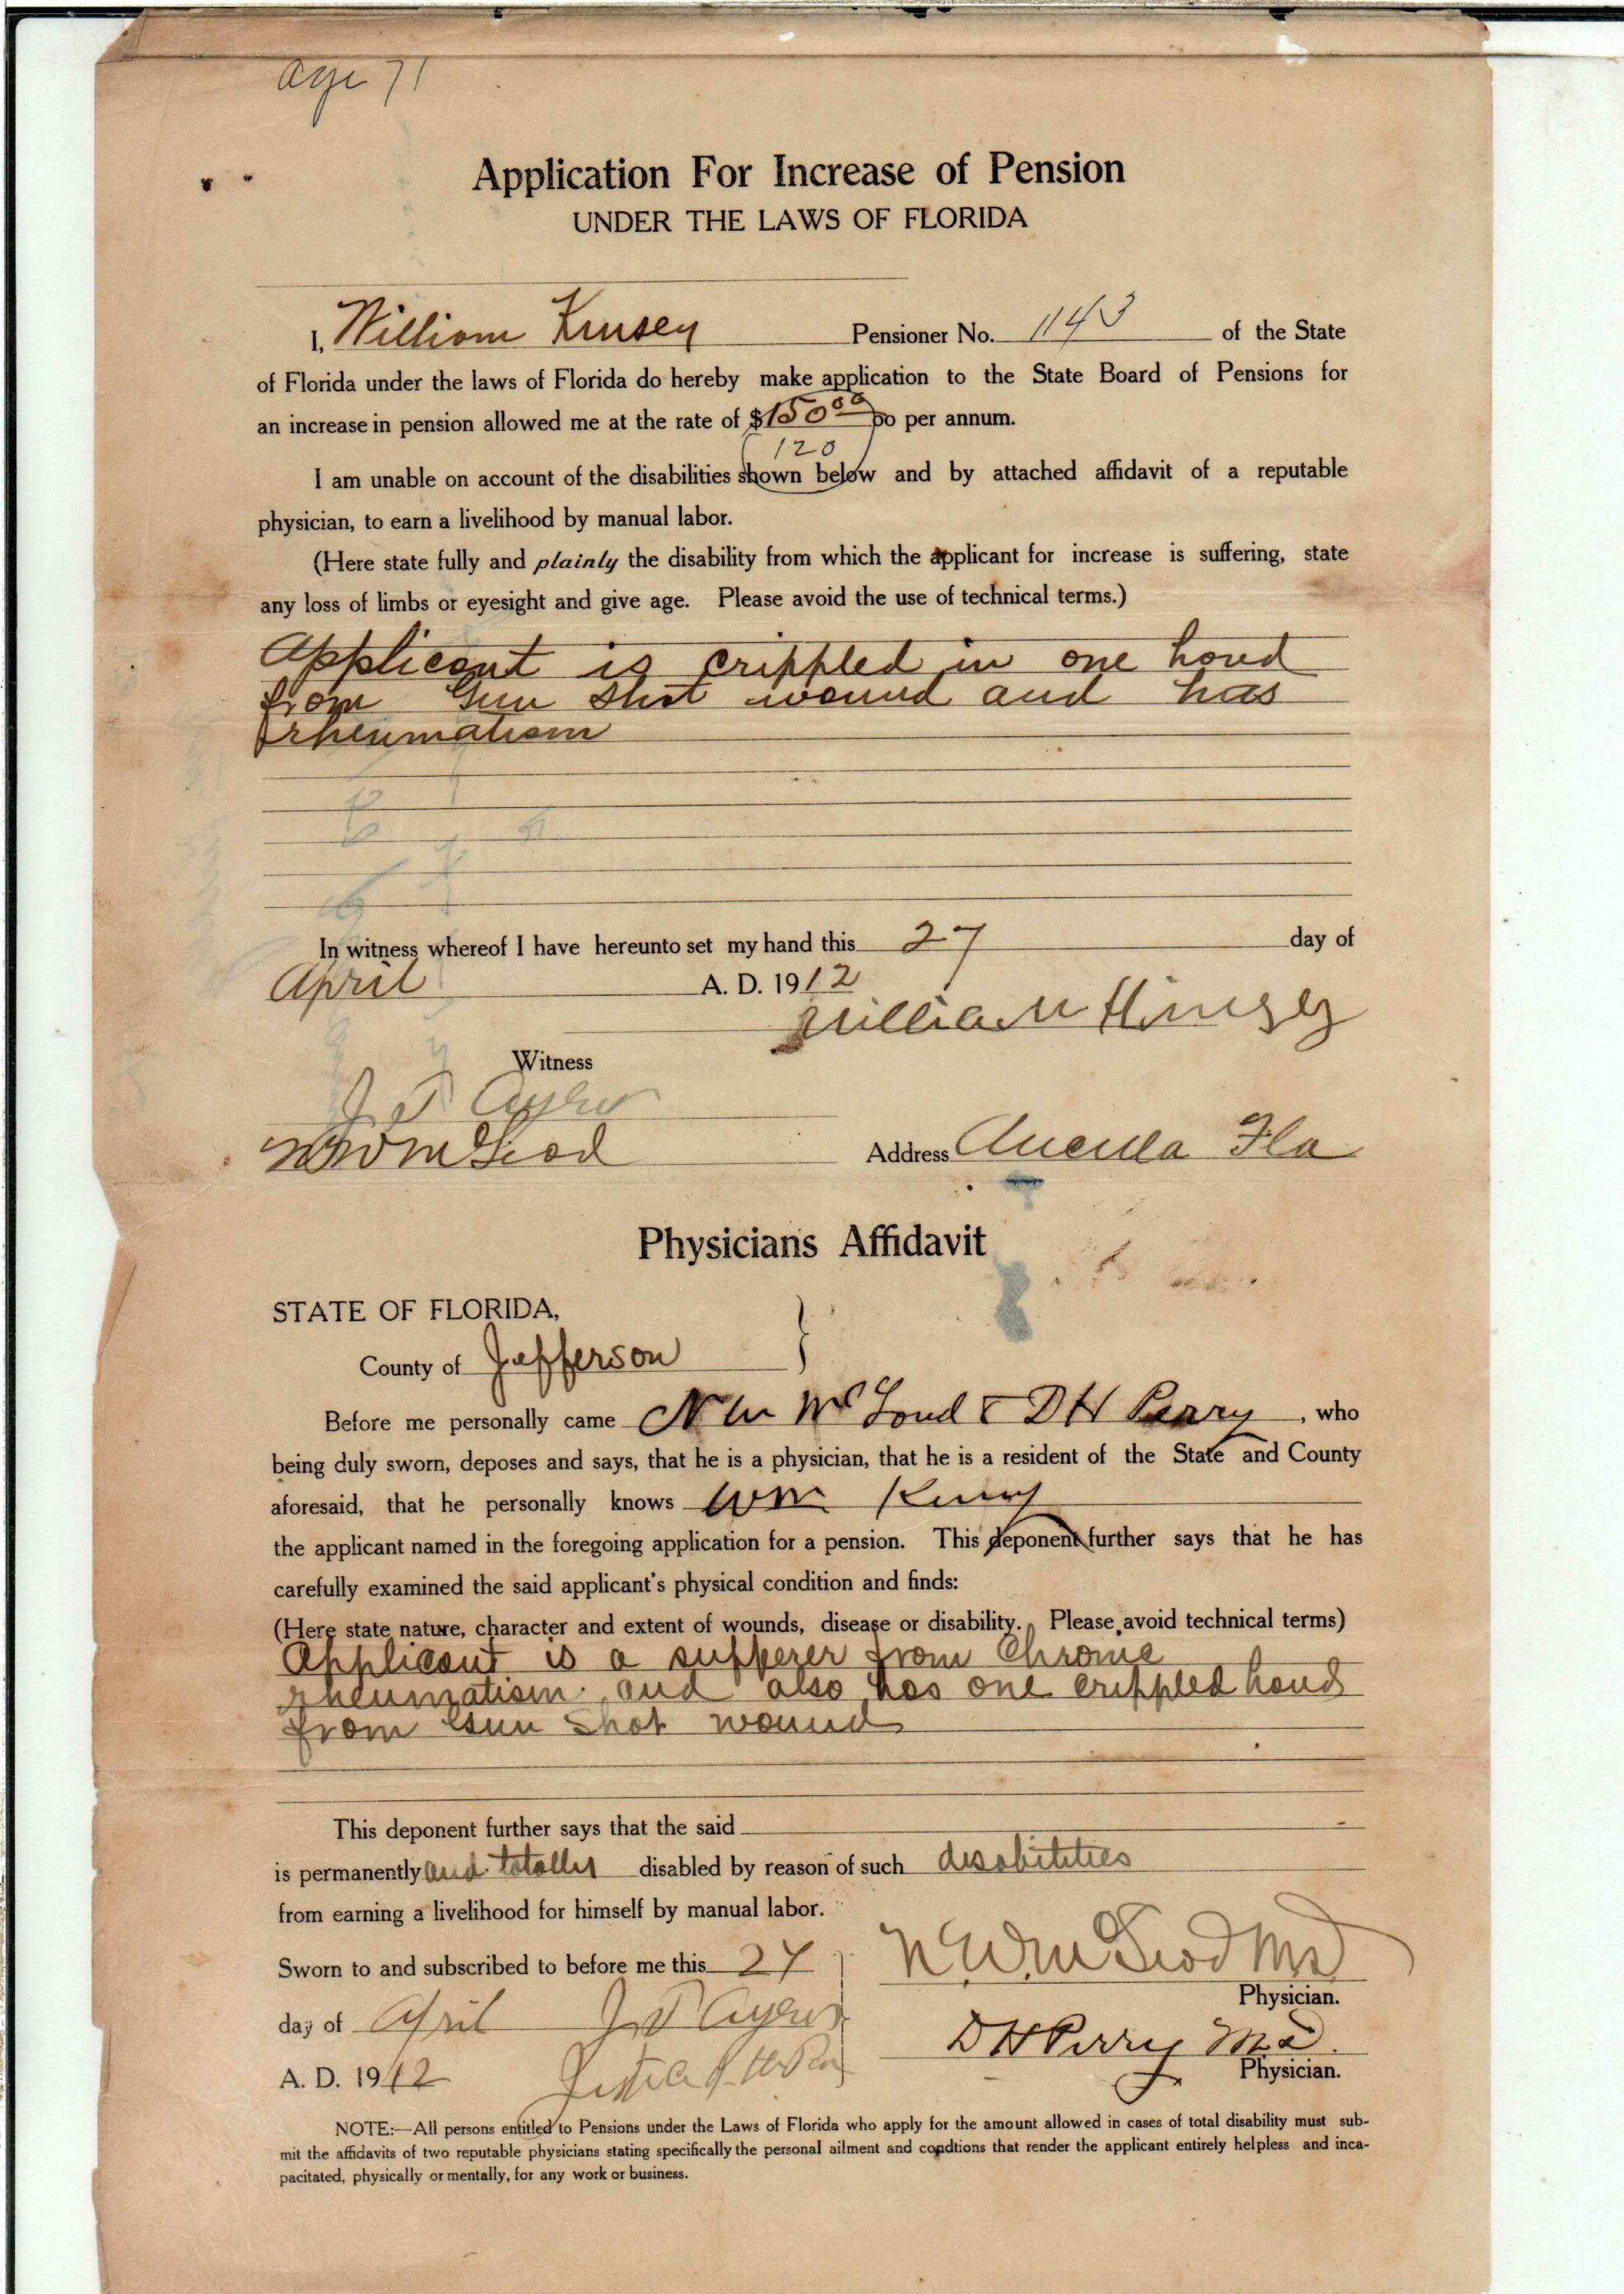 age 71
Application For Increase of Pension
UNDER THE LAWS OF FLORIDA
I, William Kinsey Pensioner No. 1143 of the State
of Florida under the laws of Florida do hereby make application to the State Board of Pensions for
an increase in pension allowed me at the rate of $150 00 00 per annum.
120
I am unable on account of the disabilities shown below and by attached affidavit of a reputable
physician, to earn a livelihood by manual labor.
(Here state fully and plainly the disability from which the applicant for increase is suffering, state
any loss of limbs or eyesight and give age. Please avoid the use of technical terms.)
Applicant is crippled in one hand
from Gun shot wound and has
rheumatism
In witness whereof I have hereunto set my hand this 27 day of
April A. D. 1912
William Kinsey
Witness
J T Ayers
N W McLeod Address Aucilla Fla
Physicians Affidavit
STATE OF FLORIDA,
County of Jefferson
Before me personally came N W McLeod & D H Perry, who
being duly sworn, deposes and says, that he is a physician, that he is a resident of the State and County
aforesaid, that he personally knows Wm Kinsy
the applicant named in the foregoing application for a pension. This deponent further says that he has
carefully examined the said applicant's physical condition and finds:
(Here state nature, character and extent of wounds, disease or disability. Please avoid technical terms)
Applicant is a sufferer from Chronic
rheumatism and also has one crippled hand
from Gun shot wound
This deponent further says that the said
is permanently and totally disabled by reason of such disabilities
from earning a livelihood for himself by manual labor.
Sworn to and subscribed to before me this 27 N. W. McLeod Md
Physician.
day of April J T Ayers
D H Perry M.D.
A. D. 1912 Physician.
NOTE:—All persons entitled to Pensions under the Laws of Florida who apply for the amount allowed in cases of total disability must sub-
mit the affidavits of two reputable physicians stating specifically the personal ailment and condtions that render the applicant entirely helpless and inca-
pacitated, physically or mentally, for any work or business.